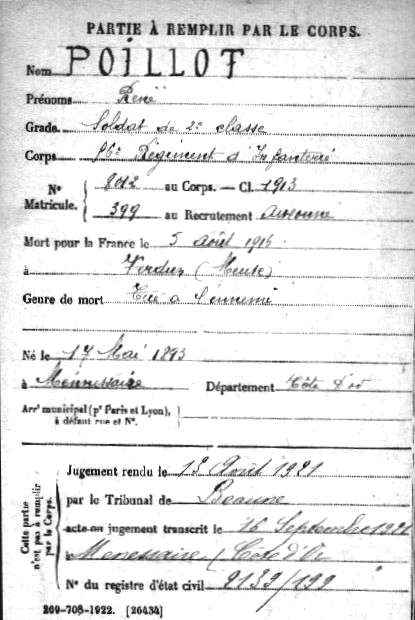 PARTIE À REMPLIR PAR LE CORPS.
Nom POILLOT
Prénoms René
Grade Soldat de 2e classe
Corps 96e Régiment d'Infanterie
N° Matricule. 8012 au Corps. — Cl. 1913
399 au Recrutement Auxonne
Mort pour la France le 5 Août 1916
à Verdun (Meuse)
Genre de mort Tué à l'ennemi
Né le 17 Mai 1893
à Ménessaire Département Côte d'or
Arrt municipal (pr Paris et Lyon), à défaut rue et N°.
Cette partie n'est pas à remplir par le Corps.
Jugement rendu le 13 Août 1921
par le Tribunal de Beaune
acte ou jugement transcrit le 16 Septembre 1921
à Menessaire (Côte d'Or
N° du registre d'état civil 9139/199
209-708-1922. [26434]